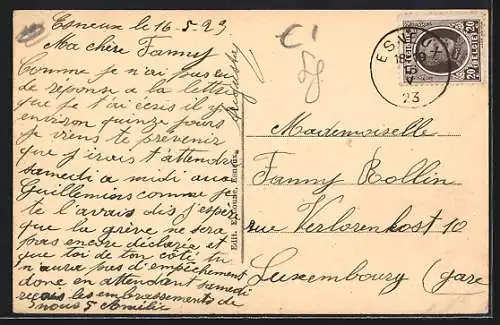 Esneux le 16-5-23
Ma chère Fanny
Comme je n'ai pas eu
de réponse a la lettre
que je t'ai écris il y a
environ quinze jours
je viens te prévenir
que j'irais t'attendre
samedi a midi aux
Guillemins comme je
te l'avais dis j'espère
que la grève ne sera
pas encore déclarée et
que toi de ton côté tu
n'auras pas d'empêchement
donc en attendant samedi
reçois les embrassements de
nous 5 Amélie
Edit. Esneux.
ESNEUX
18-19
15
V
23
BELGIQUE 20 20 BELGIE
Mademoiselle
Fanny Rollin
rue Verlorenkost 10
Luxembourg (gare